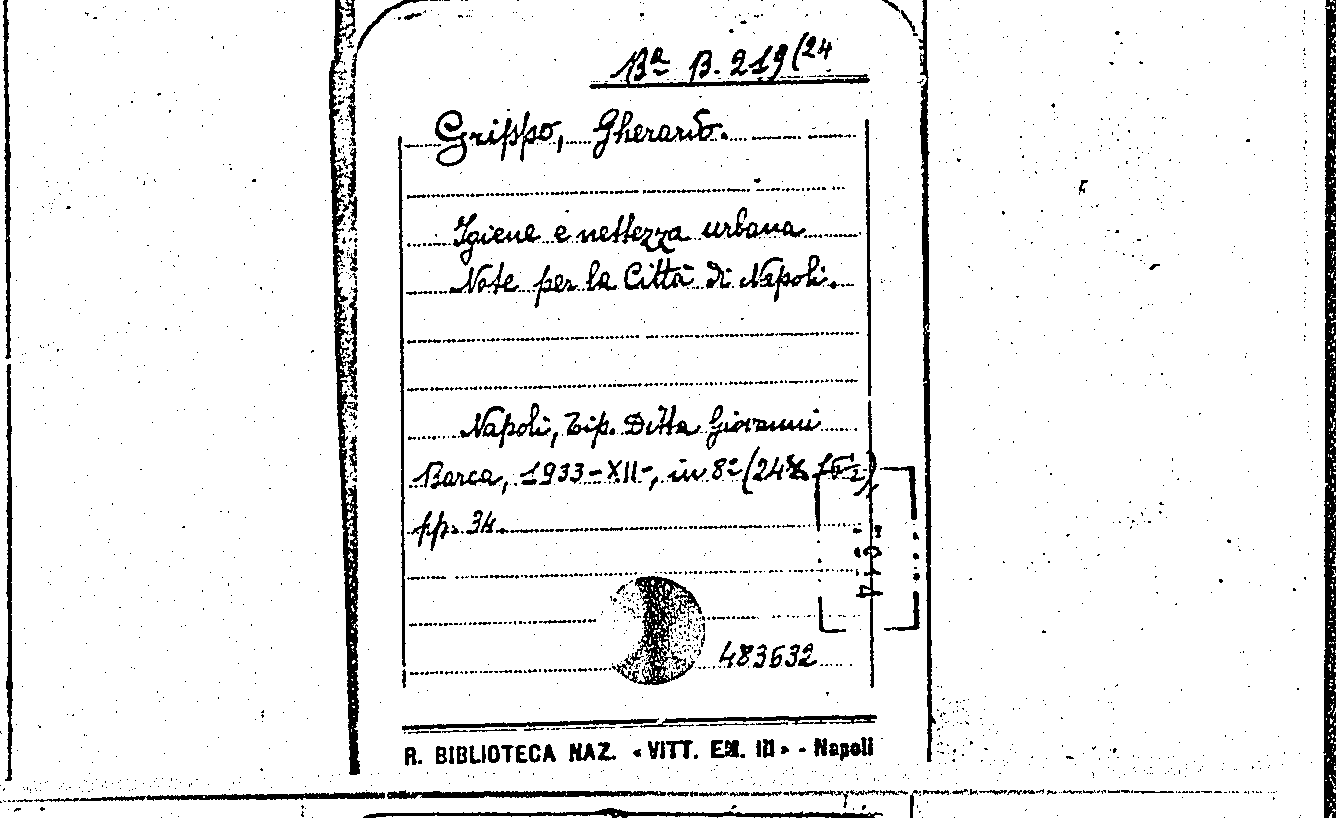 Bª B. 219(24
Grippo, Gherardo.
Igiene e nettezza urbana
Note per la Città di Napoli.
Napoli, Tip. Ditta Giovanni
Barca, 1933-XII-, in 8º (24
pp. 34.
483632
R. BIBLIOTECA NAZ. «VITT. EM. III» - Napoli